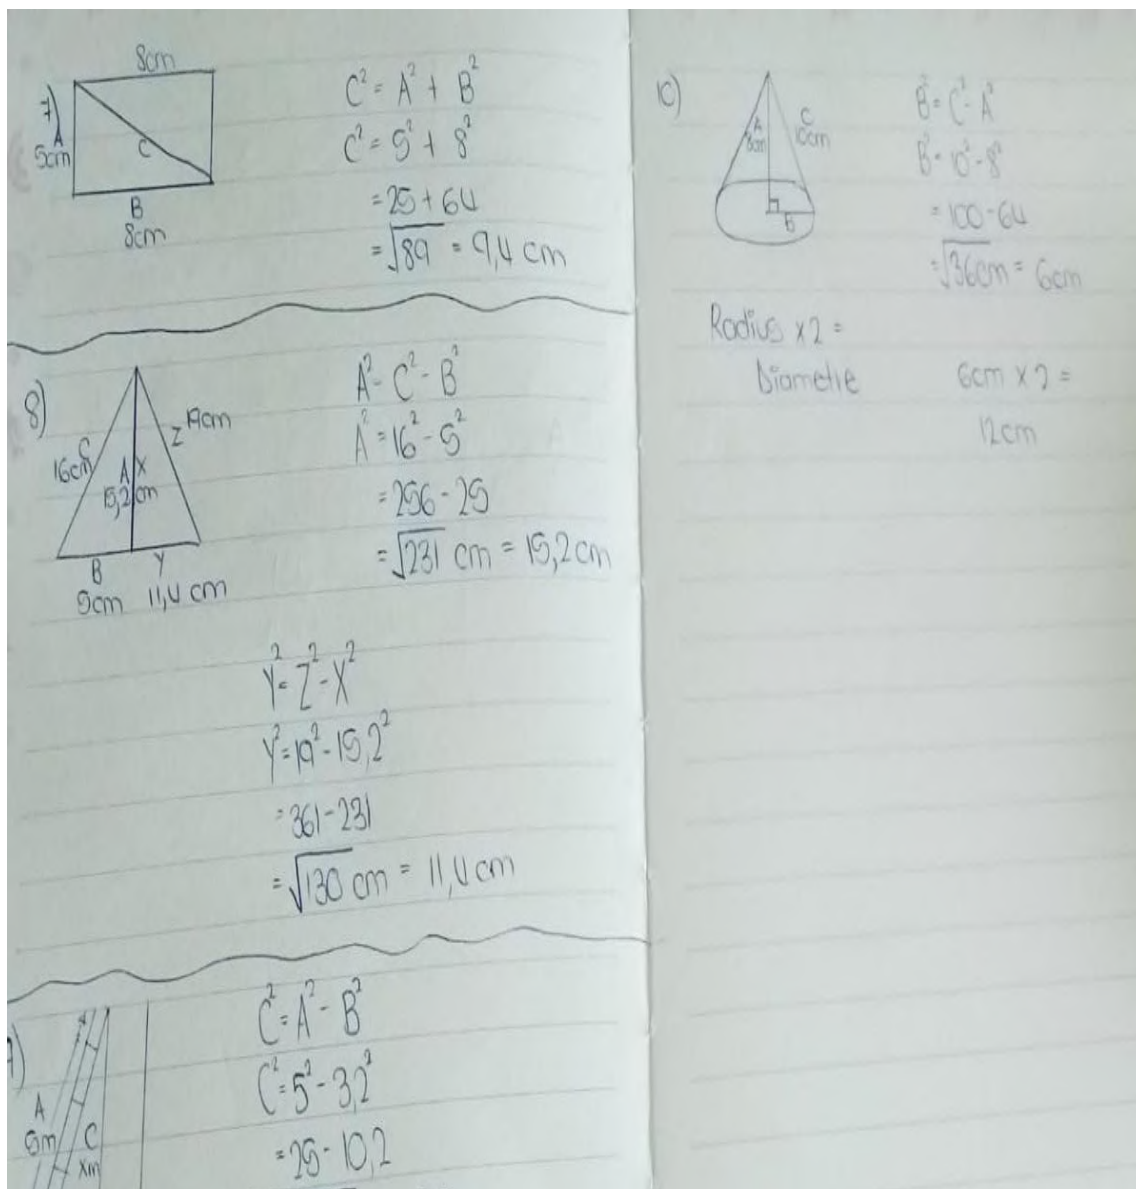 7)
8cm
A
5cm
C
B
8cm
C² = A² + B²
C² = 5² + 8²
= 25 + 64
= √89 = 9,4 cm
8)
C
16cm
Z 19cm
A X
15,2 cm
B Y
5cm 11,4 cm
A² = C² - B²
A² = 16² - 5²
= 256 - 25
= √231 cm = 15,2 cm
Y² = Z² - X²
Y² = 19² - 15,2²
= 361 - 231
= √130 cm = 11,4 cm
A
5m
C
xm
C² = A² - B²
C² = 5² - 3,2²
= 25 - 10,2
10)
A
8cm
C
10cm
B
B² = C² - A²
B² = 10² - 8²
= 100 - 64
= √36cm = 6cm
Radius x 2 =
Diametre 6cm x 2 =
12cm